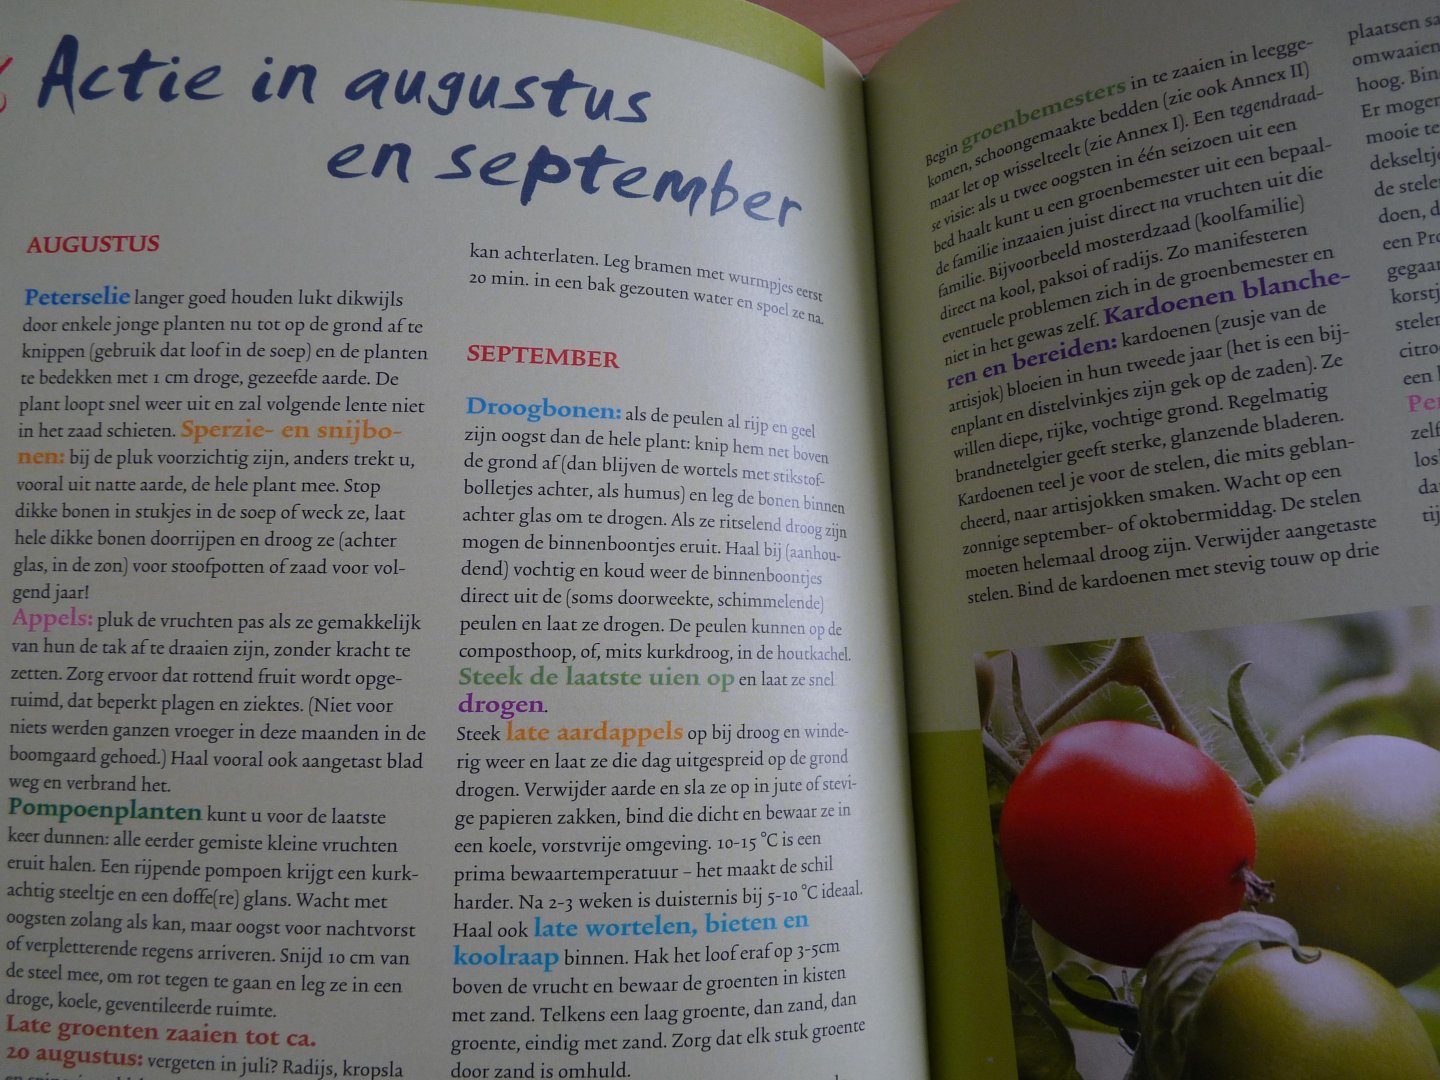 Actie in augustus
en september
AUGUSTUS
Peterselie langer goed houden lukt dikwijls
door enkele jonge planten nu tot op de grond af te
knippen (gebruik dat loof in de soep) en de planten
te bedekken met 1 cm droge, gezeefde aarde. De
plant loopt snel weer uit en zal volgende lente niet
in het zaad schieten. Sperzie- en snijbo-
nen: bij de pluk voorzichtig zijn, anders trekt u,
vooral uit natte aarde, de hele plant mee. Stop
dikke bonen in stukjes in de soep of weck ze, laat
hele dikke bonen doorrijpen en droog ze (achter
glas, in de zon) voor stoofpotten of zaad voor vol-
gend jaar!
Appels: pluk de vruchten pas als ze gemakkelijk
van hun de tak af te draaien zijn, zonder kracht te
zetten. Zorg ervoor dat rottend fruit wordt opge-
ruimd, dat beperkt plagen en ziektes. (Niet voor
niets werden ganzen vroeger in deze maanden in de
boomgaard gehoed.) Haal vooral ook aangetast blad
weg en verbrand het.
Pompoenplanten kunt u voor de laatste
keer dunnen: alle eerder gemiste kleine vruchten
eruit halen. Een rijpende pompoen krijgt een kurk-
achtig steeltje en een doffe(re) glans. Wacht met
oogsten zolang als kan, maar oogst voor nachtvorst
of verpletterende regens arriveren. Snijd 10 cm van
de steel mee, om rot tegen te gaan en leg ze in een
droge, koele, geventileerde ruimte.
Late groenten zaaien tot ca.
20 augustus: vergeten in juli? Radijs, kropsla
kan achterlaten. Leg bramen met wurmpjes eerst
20 min. in een bak gezouten water en spoel ze na.
SEPTEMBER
Droogbonen: als de peulen al rijp en geel
zijn oogst dan de hele plant: knip hem net boven
de grond af (dan blijven de wortels met stikstof-
bolletjes achter, als humus) en leg de bonen binnen
achter glas om te drogen. Als ze ritselend droog zijn
mogen de binnenboontjes eruit. Haal bij (aanhou-
dend) vochtig en koud weer de binnenboontjes
direct uit de (soms doorweekte, schimmelende)
peulen en laat ze drogen. De peulen kunnen op de
composthoop, of, mits kurkdroog, in de houtkachel.
Steek de laatste uien op en laat ze snel
drogen.
Steek late aardappels op bij droog en winde-
rig weer en laat ze die dag uitgespreid op de grond
drogen. Verwijder aarde en sla ze op in jute of stevi-
ge papieren zakken, bind die dicht en bewaar ze in
een koele, vorstvrije omgeving. 10-15 °C is een
prima bewaartemperatuur – het maakt de schil
harder. Na 2-3 weken is duisternis bij 5-10 °C ideaal.
Haal ook late wortelen, bieten en
koolraap binnen. Hak het loof eraf op 3-5cm
boven de vrucht en bewaar de groenten in kisten
met zand. Telkens een laag groente, dan zand, dan
groente, eindig met zand. Zorg dat elk stuk groente
door zand is omhuld.
Begin groenbemesters in te zaaien in leegge-
komen, schoongemaakte bedden (zie ook Annex II)
maar let op wisselteelt (zie Annex I). Een tegendraad-
se visie: als u twee oogsten in één seizoen uit een
bed haalt kunt u een groenbemester uit een bepaal-
de familie inzaaien juist direct na vruchten uit die
familie. Bijvoorbeeld mosterdzaad (koolfamilie)
direct na kool, paksoi of radijs. Zo manifesteren
eventuele problemen zich in de groenbemester en
niet in het gewas zelf. Kardoenen blanche-
ren en bereiden: kardoenen (zusje van de
artisjok) bloeien in hun tweede jaar (het is een bij-
enplant en distelvinkjes zijn gek op de zaden). Ze
willen diepe, rijke, vochtige grond. Regelmatig
brandnetelgier geeft sterke, glanzende bladeren.
Kardoenen teel je voor de stelen, die mits geblan-
cheerd, naar artisjokken smaken. Wacht op een
zonnige september- of oktobermiddag. De stelen
moeten helemaal droog zijn. Verwijder aangetaste
stelen. Bind de kardoenen met stevig touw op drie
plaatsen
omwaaien
hoog.
Er
mooie
de
doen,
een